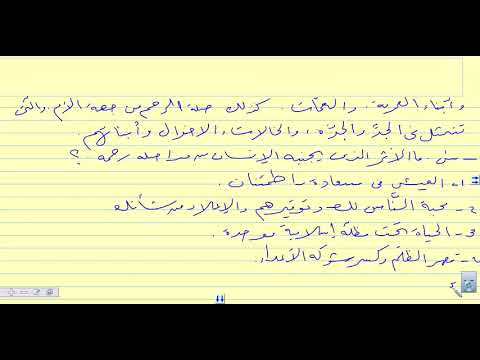 وأبناء العمومة. والعمّات. كذلك صلة الرحم من جهة الأم. والتي
تتمثل في الجدّ والجدّة، والخالات والأخوال وأبنائهم.
س. ما الأثر الذي يجنيه الإنسان من مواصلة رحمه ؟
١- العيش في سعادة واطمئنان.
٢- محبة النّاس لك وتوقيرهم والإعلاء من شأنك
٣- الحياة تحت مظلة إسلامية موحدة.
٤- قصر الظلم وكسر شوكة الأعداء.